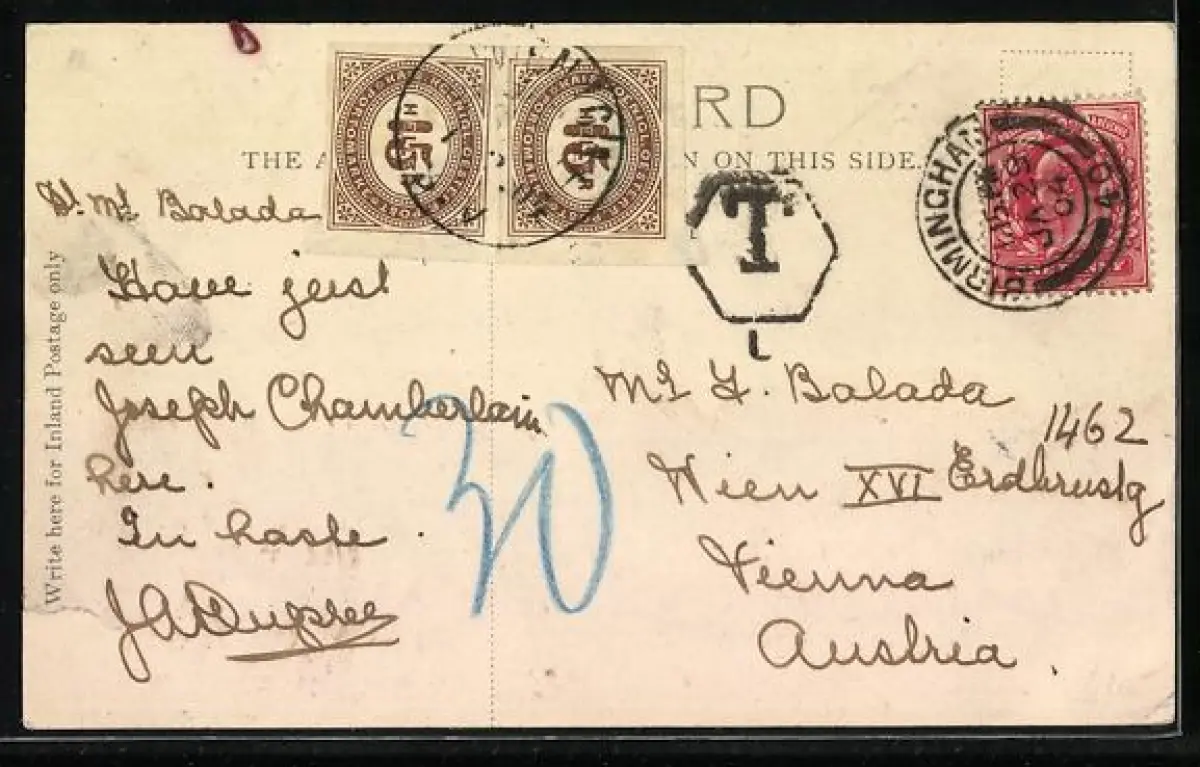 RD
THE A N ON THIS SIDE.
15 HELLER
15 HELLER
T
L
BIRMINGHAM
JA 23
04
Write here for Inland Postage only
Mr Balada
Have just
seen
Joseph Chamberlain
here.
In haste.
JA Dupree
30
Mr F. Balada
1462
Wien XVI Erdbrustg
Vienna
Austria.